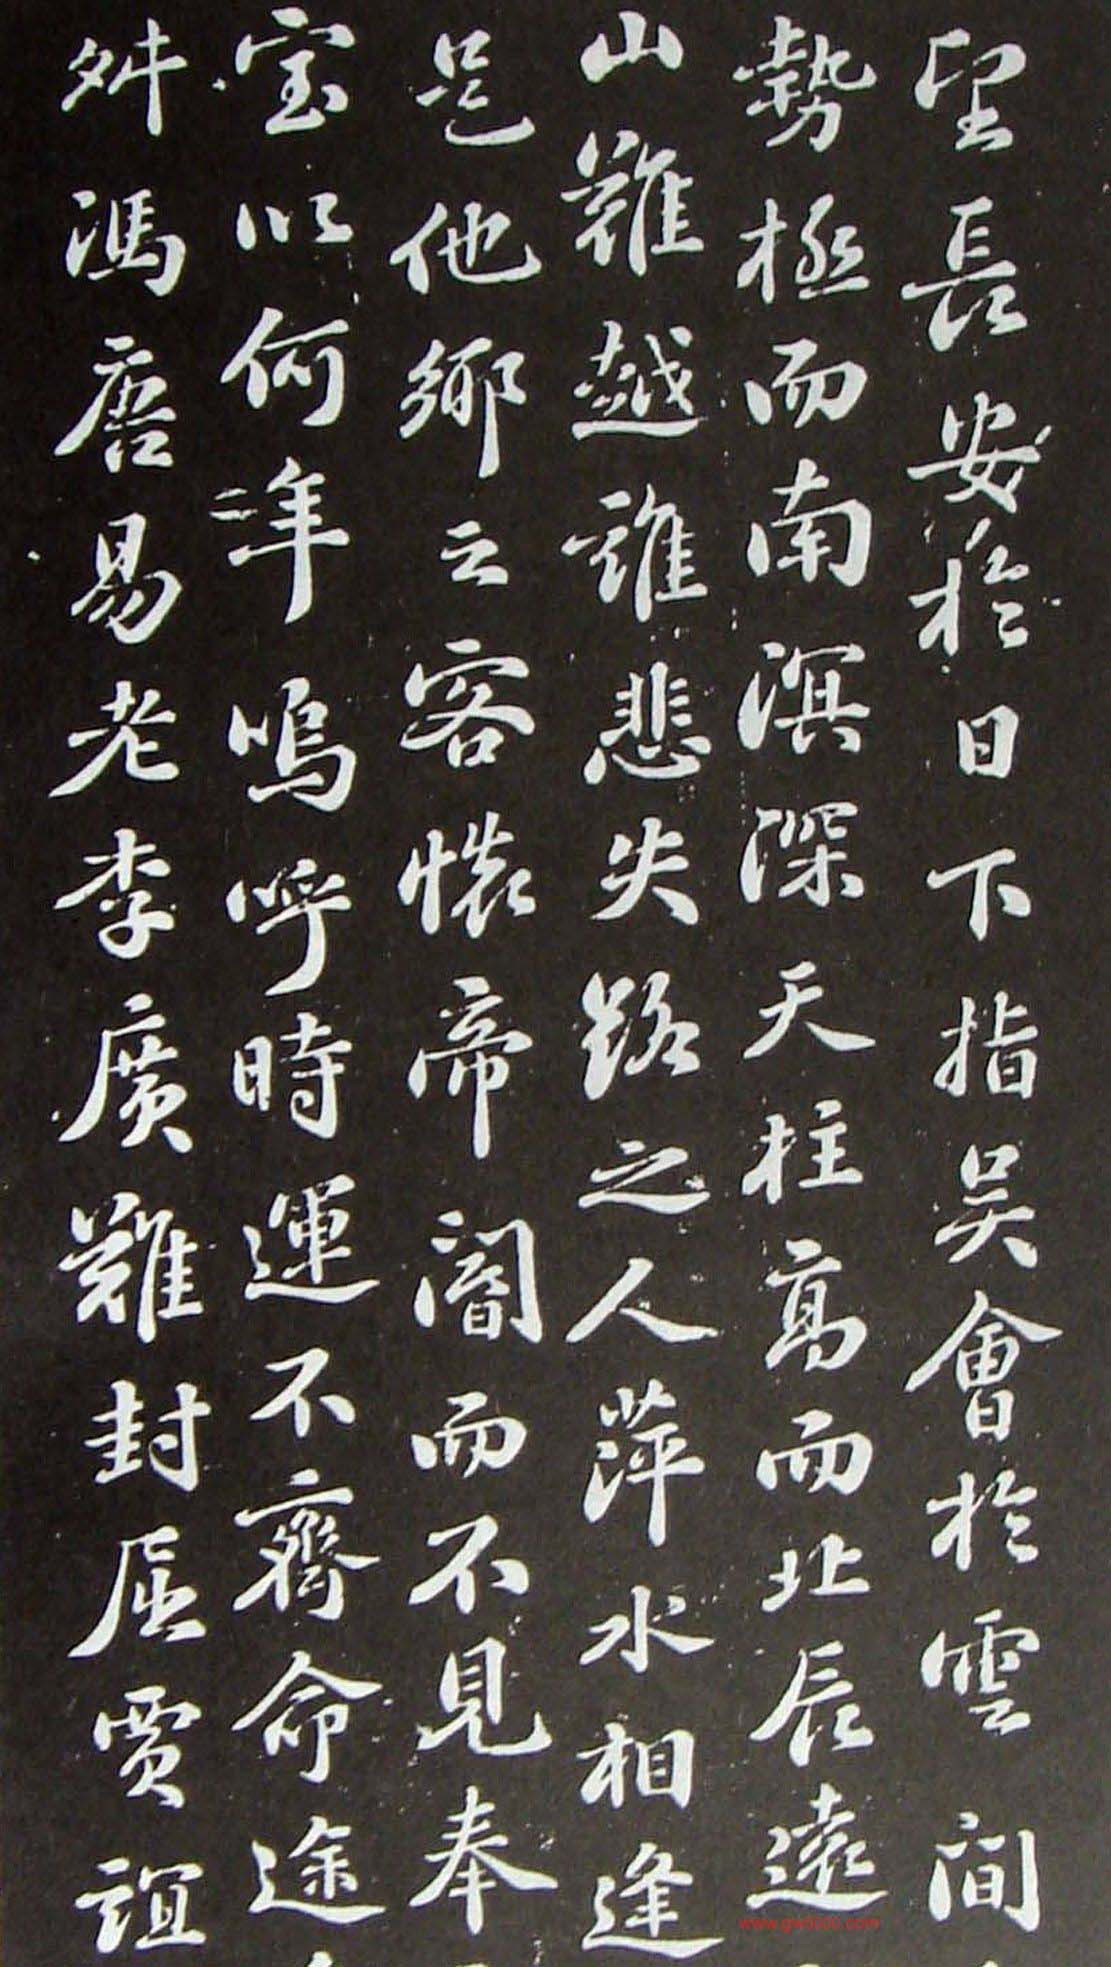 望長安於日下指吳會於雲間
勢極而南溟深天柱高而北辰遠
山難越誰悲失路之人萍水相逢
是他鄉之客懷帝閽而不見奉
室以何年嗚呼時運不齊命途
舛馮唐易老李廣難封屈賈誼
www.gw8000.com